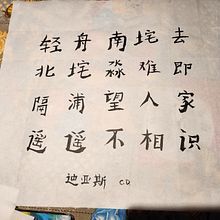 轻舟南垞去
北垞淼难即
隔浦望人家
遥遥不相识
迪亚斯 CD